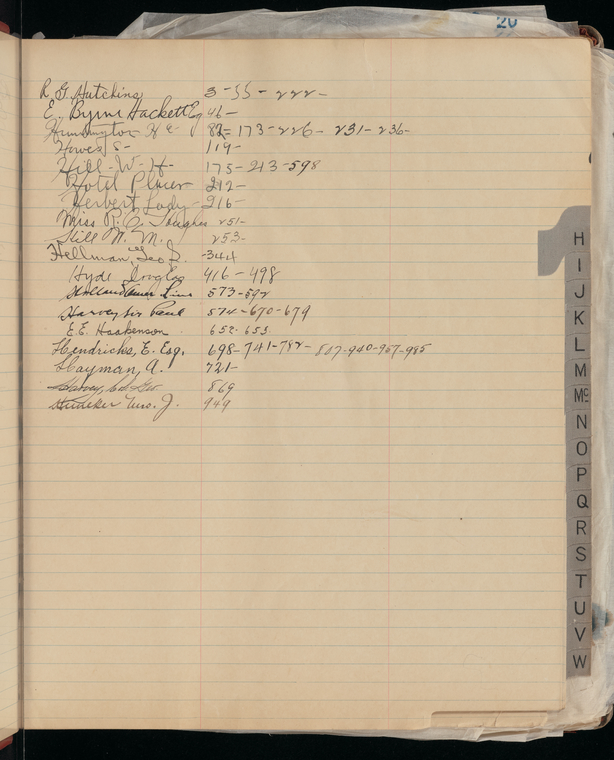 20
R. G. Hutchins 3-55-222-
E. Byrne Hackett Esq 46-
Huntington H E 82-173-226-231-236-
Howes S- 119-
Hill-W-H- 175-213-598
Hotel Placer- 212-
Herbert Lady- 216-
Miss R. C. Hughes 251-
Hill W. M. 253-
Hellman, Geo S. -344
Hyde Douglas 416-498
Holland Amer. Line 573-592
Harvey Sir Paul 574-670-679
E.E. Haakenson 652-653
Hendricks, E. Esq. 698-741-782-807-940-957-985
Hayman, A. 721-
Harvey, 869
Huneker Mrs. J. 949
H
I
J
K
L
M
Mc
N
O
P
Q
R
S
T
U
V
W